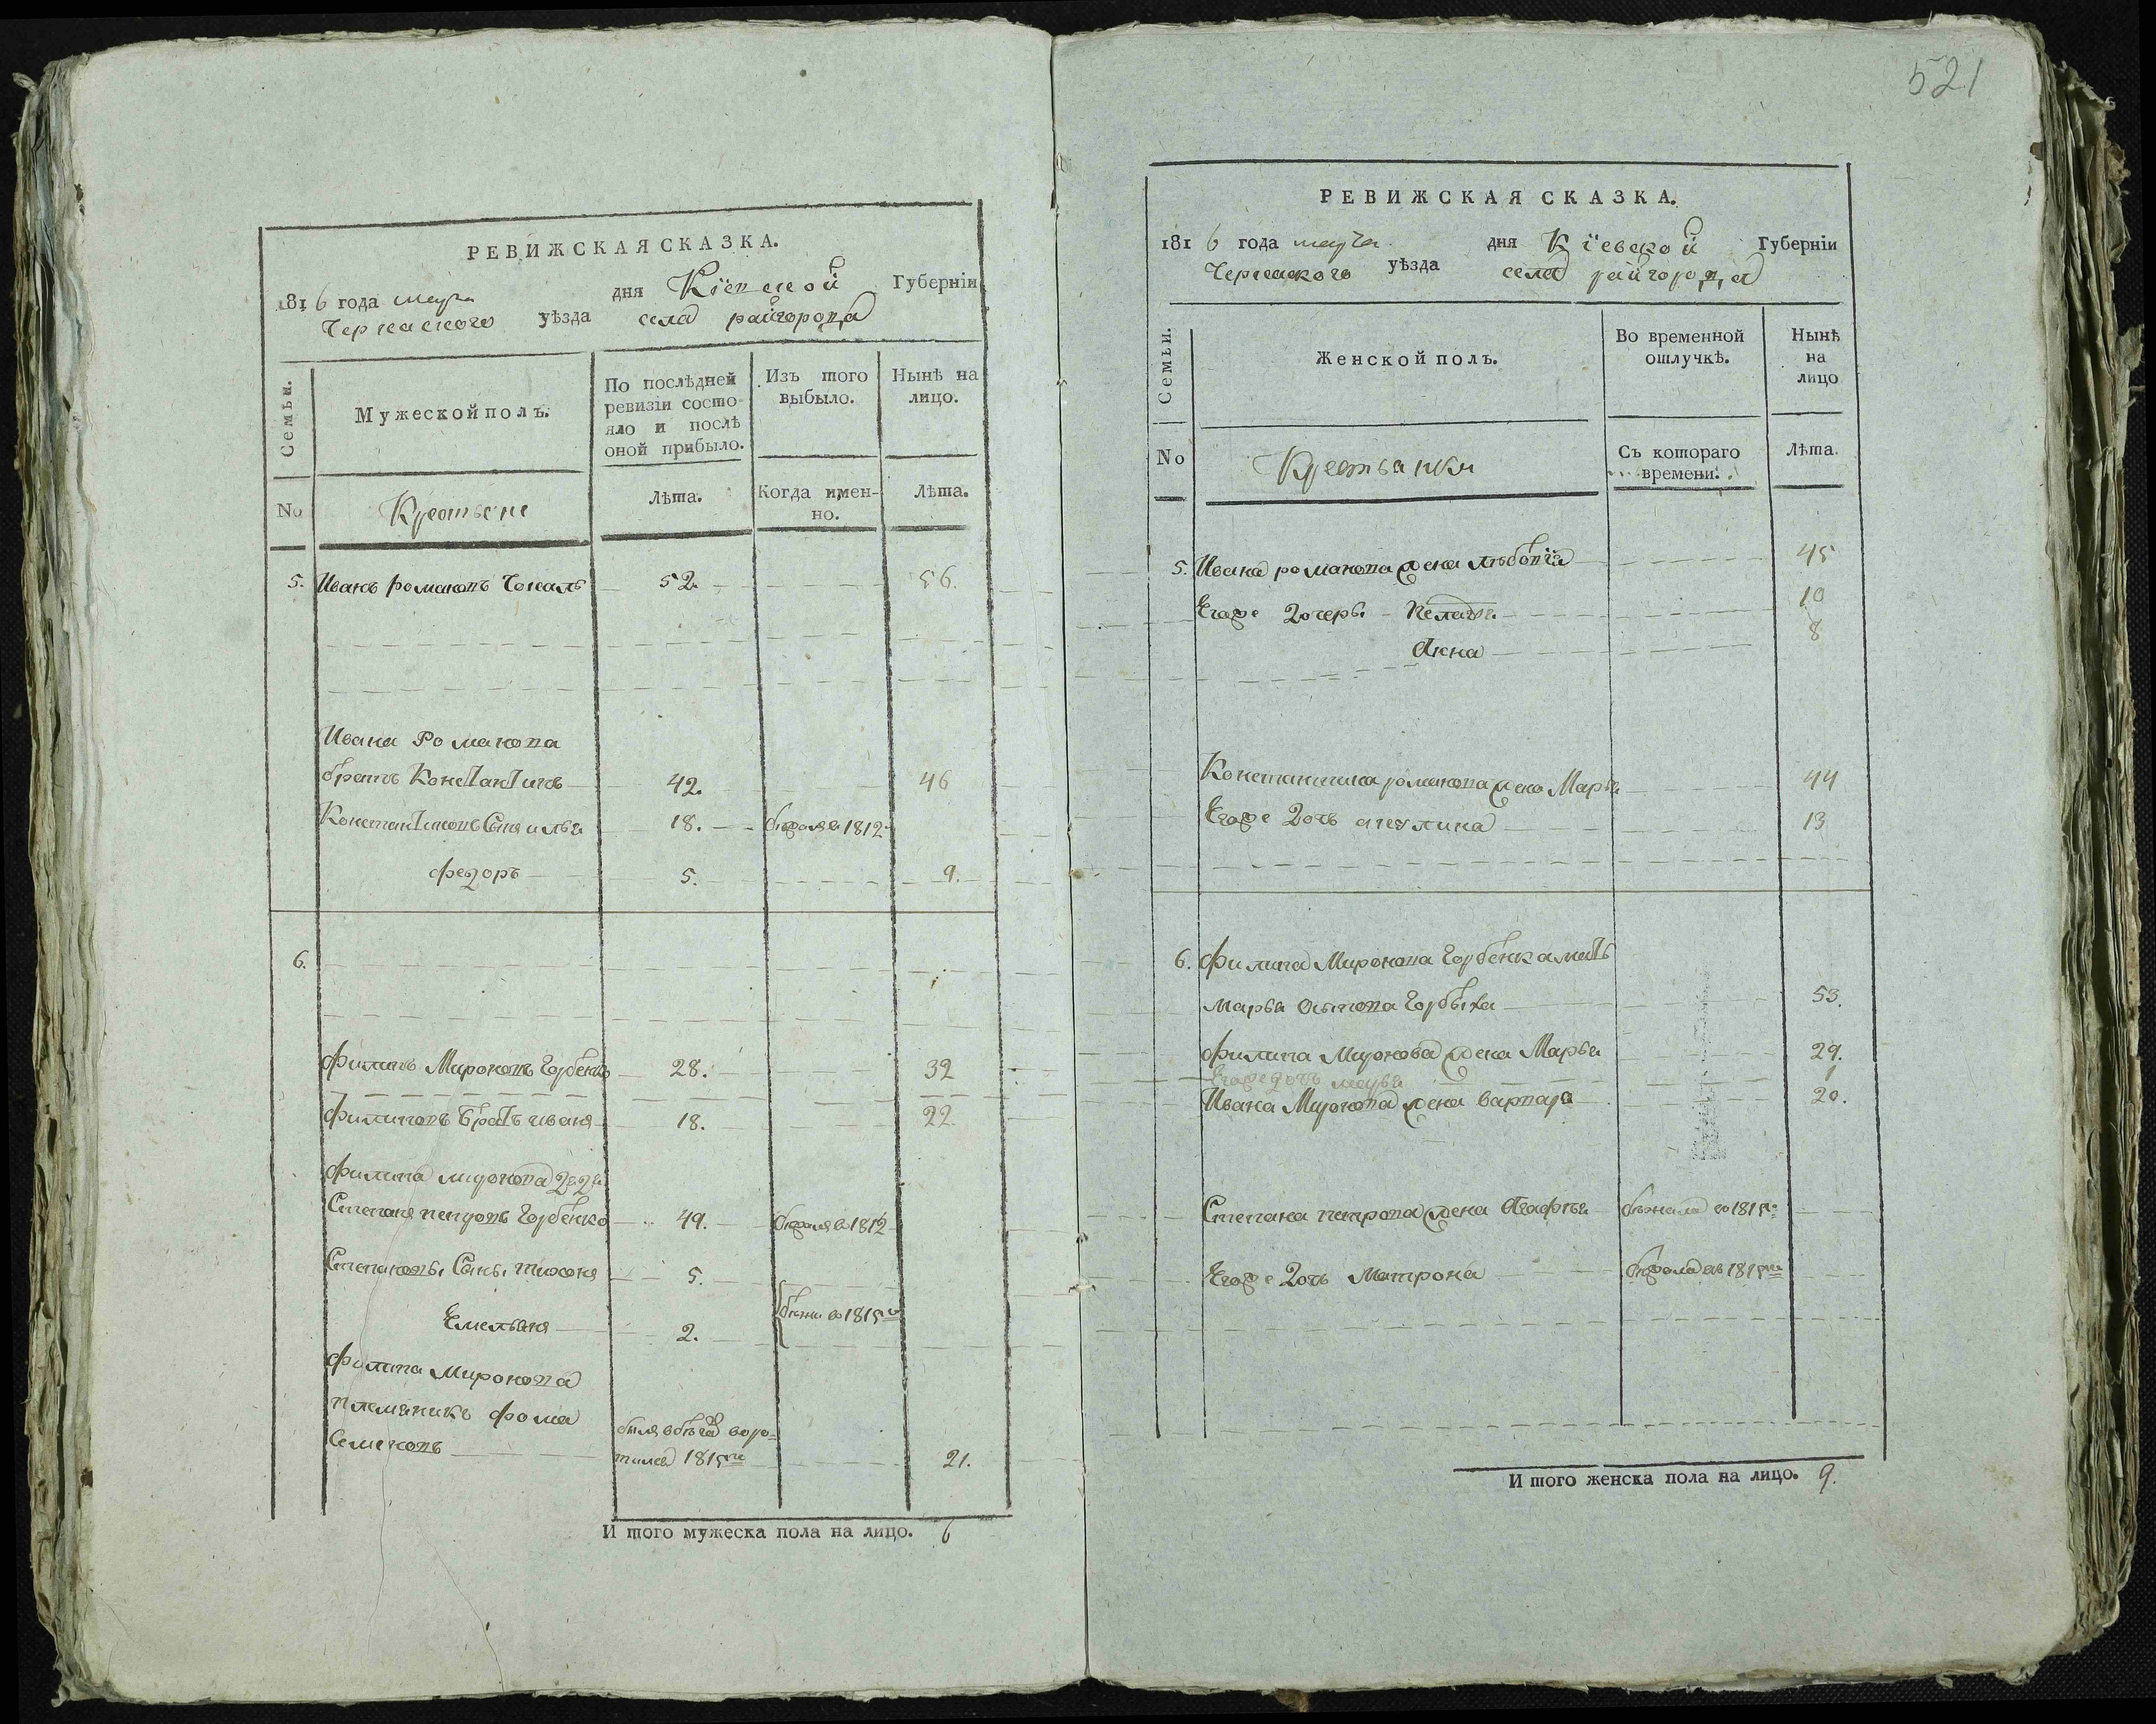 РЕВИЖСКАЯ СКАЗКА.
1816 года марта дня Кіевской Губерніи
Черкаского уѣзда села райгорода
Семьи.
Мужеской полъ.
По послѣдней ревизіи состояло и послѣ оной прибыло.
Изъ того выбыло.
Нынѣ на лицо.
No
Крестьяне
Лѣта.
Когда именно.
Лѣта.
5. Иванъ романовъ 52. 56.
Ивана Романова
братъ Константинъ 42. 46
Константиновъ Сынъ илья 18. 1812
федоръ 5. 9.
6.
Филипъ Мироновъ Горбенко 28. 32
Филиповъ братъ иванъ 18. 22.
Филипа миронова дядя
Степанъ петровъ Горбенко 49. 1812
Степановы Сыны тихонъ 5.
Емельянъ 2. бѣжи въ 1815мъ
Филипа Миронова
племяникъ фома
Семеновъ былъ вбѣгах воро-
тился 1815го 21.
И того мужеска пола на лицо. 6
521
РЕВИЖСКАЯ СКАЗКА.
1816 года марта дня Кіевской Губерніи
Черкаского уѣзда села райгорода
Семьи.
Женской полъ.
Во временной отлучкѣ.
Нынѣ на лицо
No
Крестьянки
Съ котораго времени.
Лѣта.
5. Ивана романова жена 45
Егоже дочери Пелагея 10
Анна 8
Константина романова жена Марья 44
Егоже дочь акулина 13
6. Филипа Миронова Горбенка мать
марья Горбыха 53.
Филипа Миронова жена Марья 29.
Егоже дочь 1
Ивана Миронова жена варвара 20.
Степана петрова жена Агафья бѣжала въ 1815мъ
Егоже дочь Матрона 1815мъ
И того женска пола на лицо. 9.